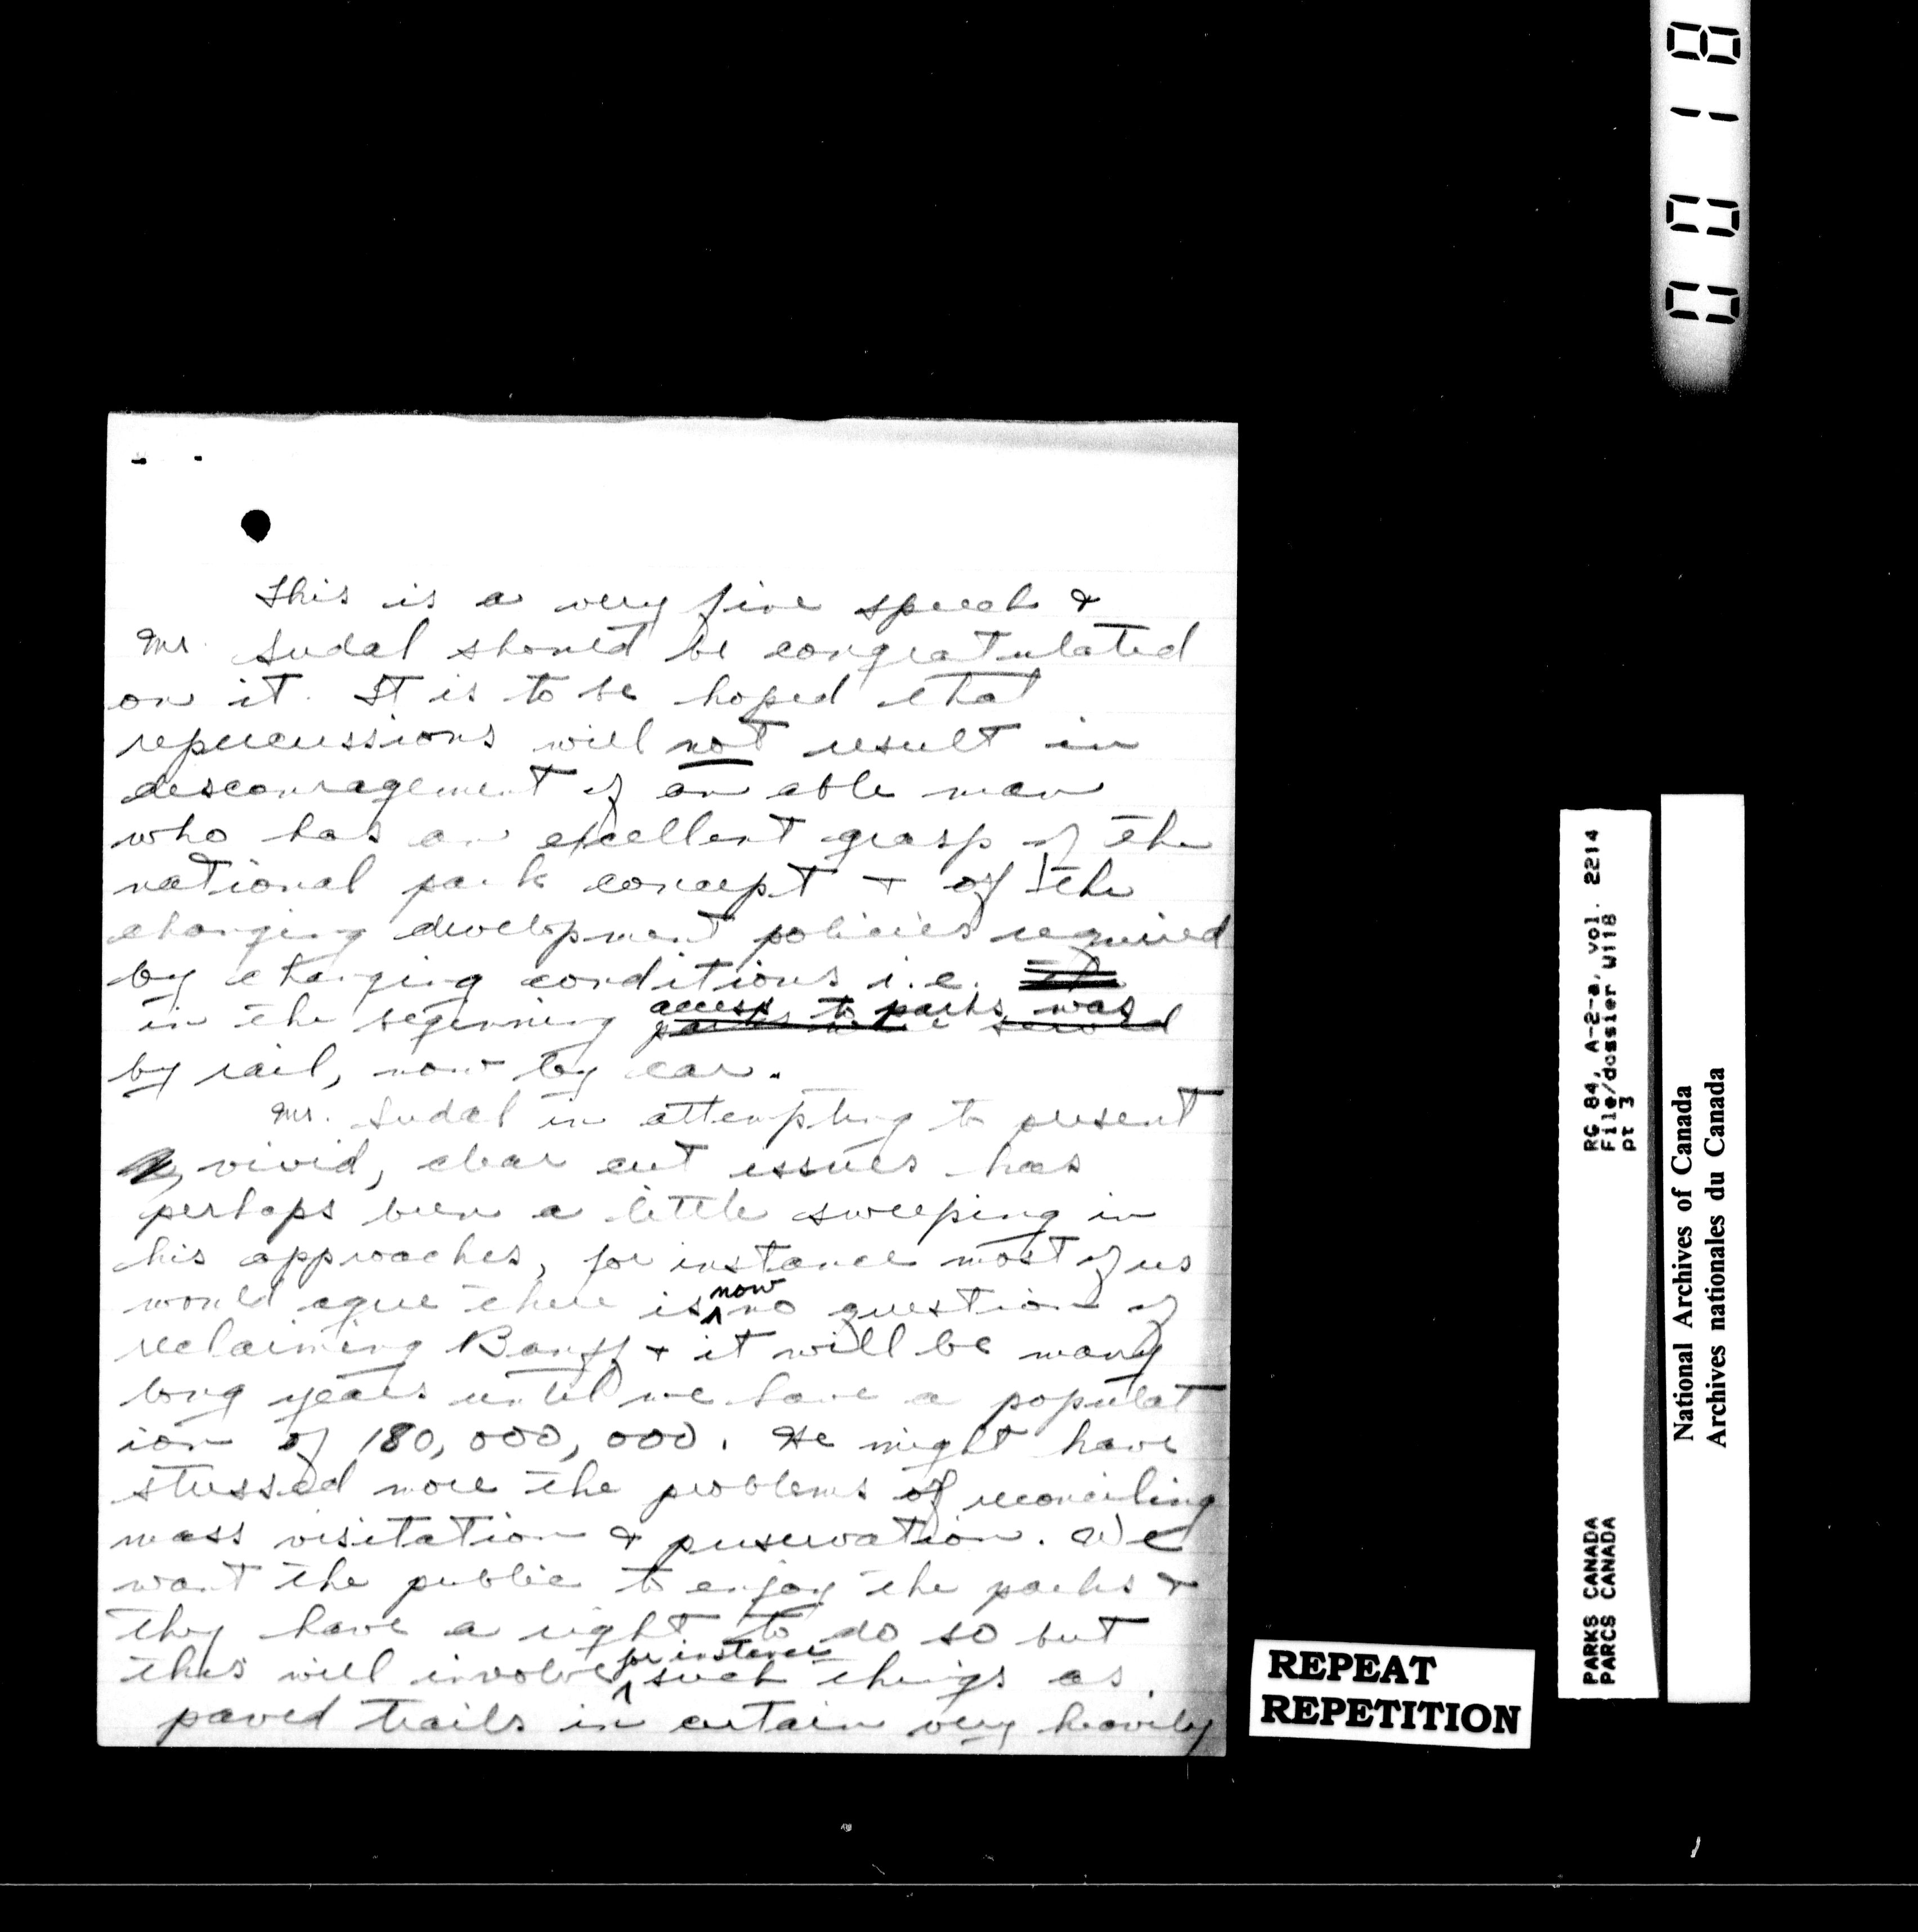 This is a very fine speech &
Mr. Sudal should be congratulated
on it. It is to be hoped that
repercussions will not result in
descouragement of an able man
who has an excellent grasp of the
national park concept + of the
changing development policies required
by changing conditions i.e.
in the beginning access to parks was
by rail, now by car.
Mr. Sudal in attempting to present
vivid, clear cut issues has
perhaps been a little sweeping in
his approaches, for instance most of us
would agree there is now no question of
reclaiming Banff + it will be many
long years until we have a populat
ion of 180,000,000. He might have
stressed more the problems of reconciling
mass visitation & preservation. We
want the public to enjoy the parks &
they have a right to do so but
this will involve for instance such things as
paved trails in certain very heavily
00118
RG 84, A-2-a, vol. 2214
File/dossier U118
pt 3
PARKS CANADA
PARCS CANADA
National Archives of Canada
Archives nationales du Canada
REPEAT
REPETITION